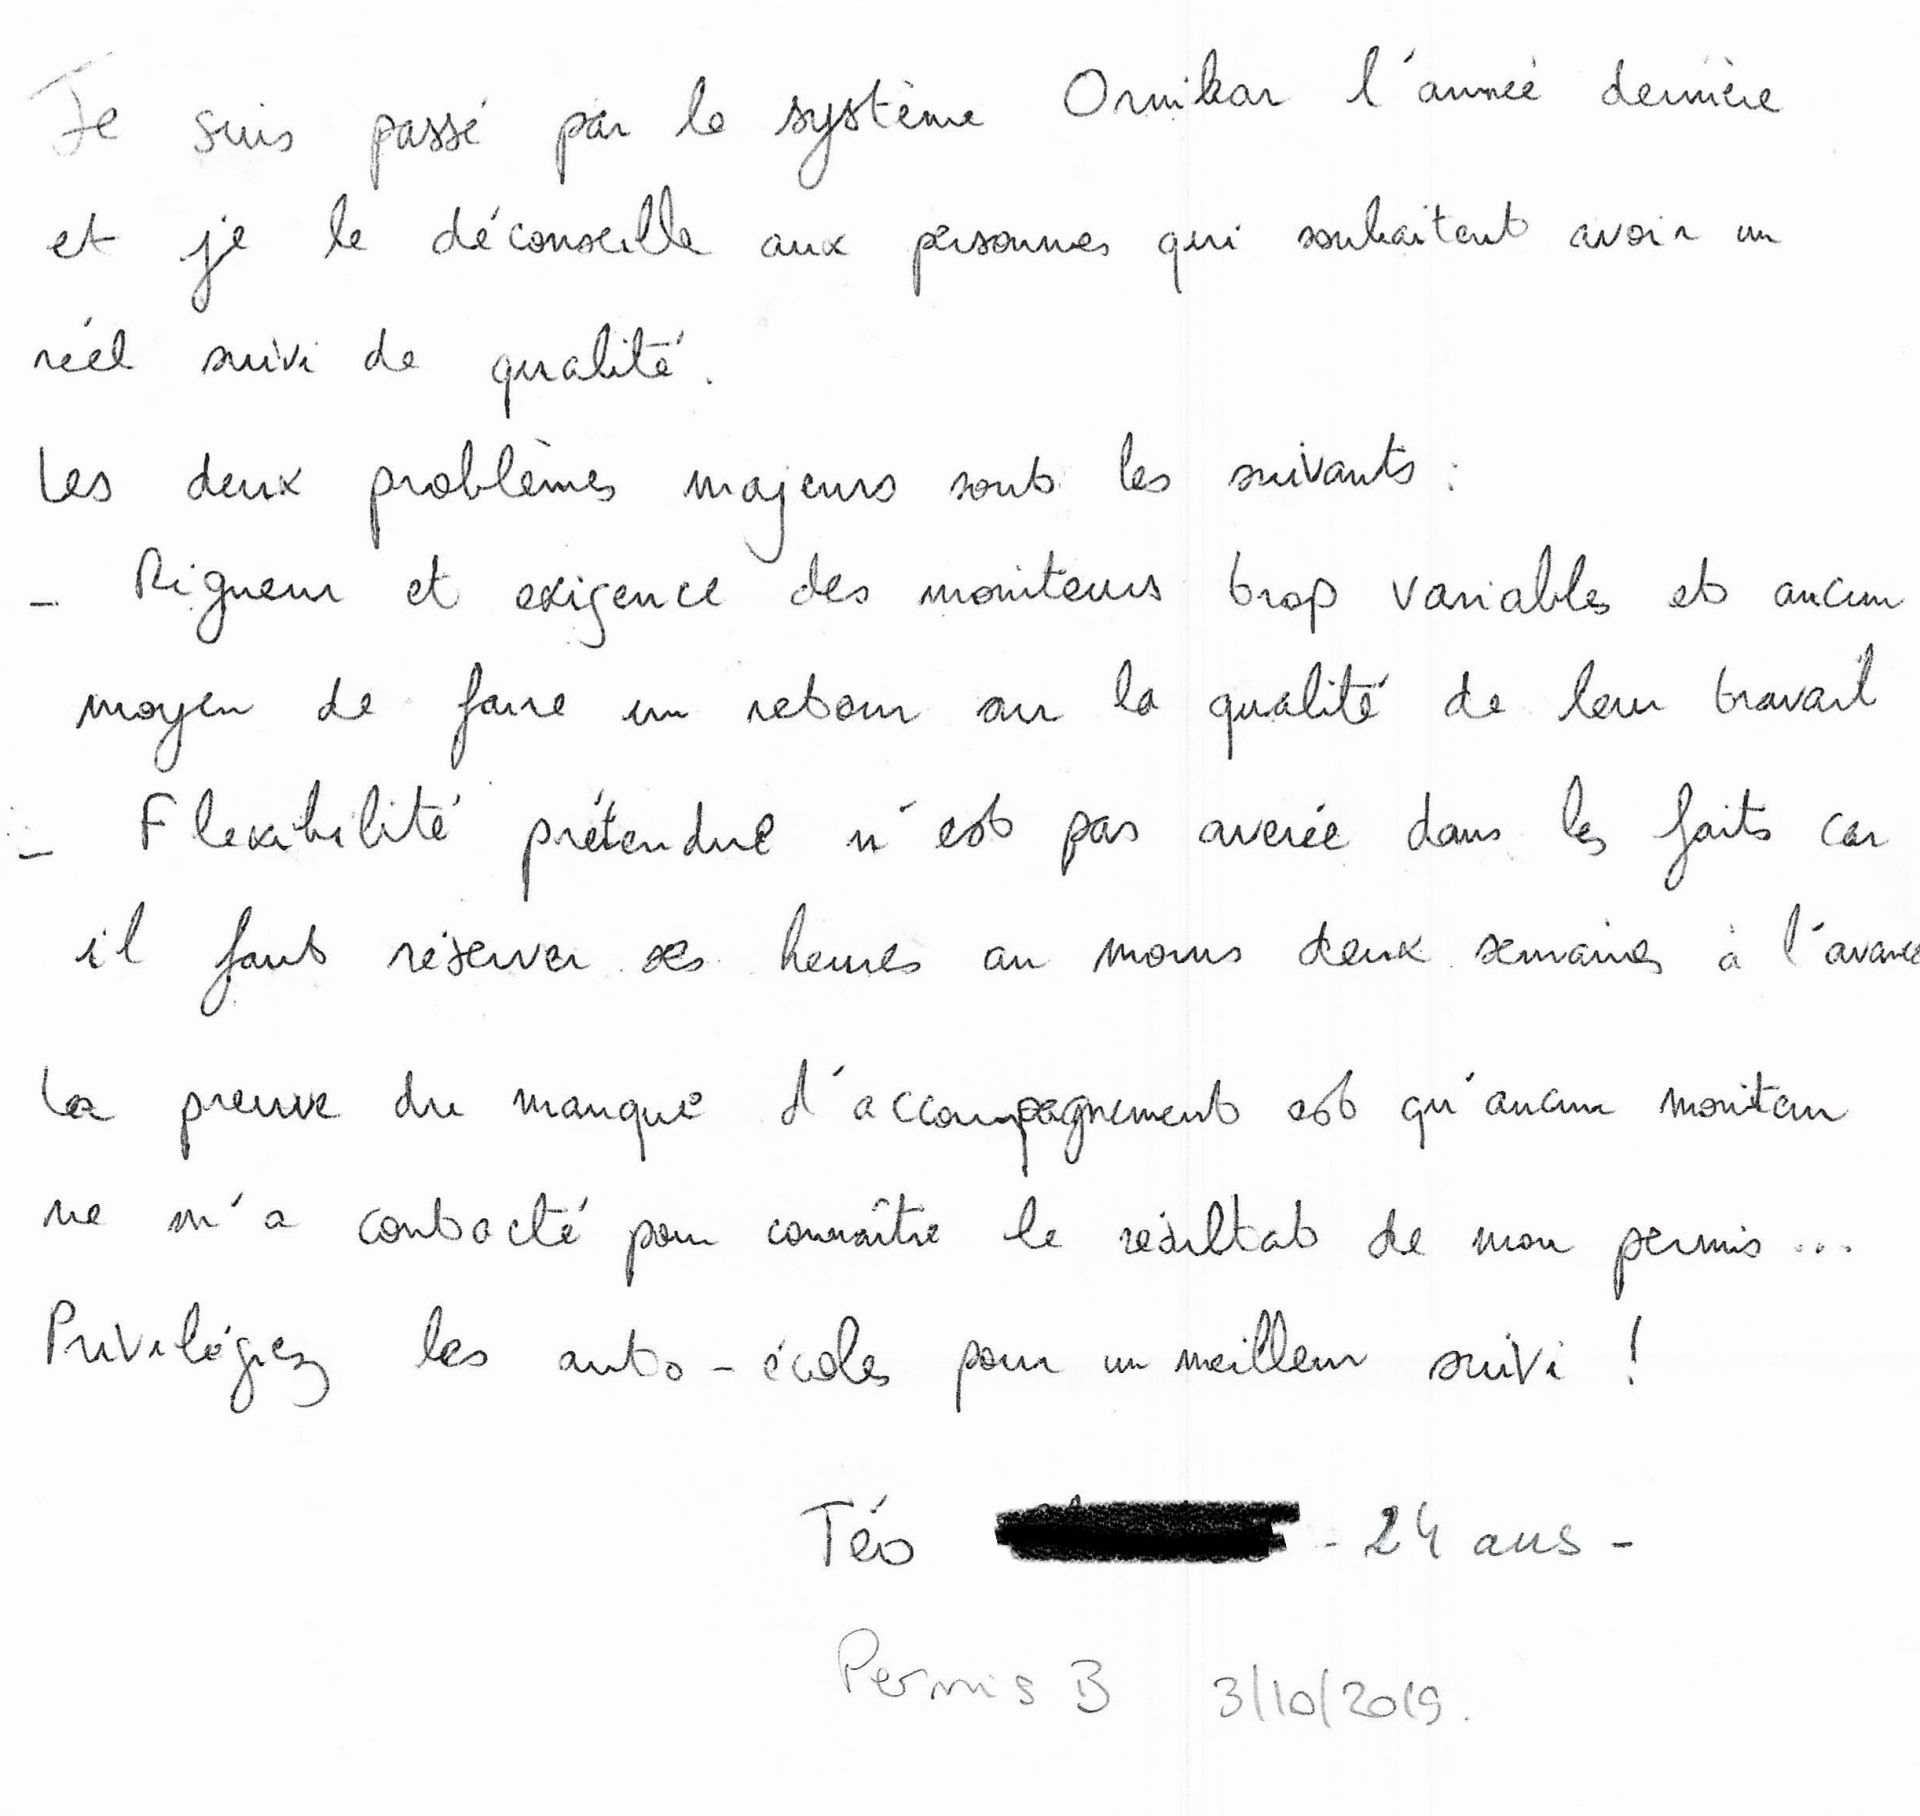 Je suis passé par le système Ornikar l'année dernière
et je le déconseille aux personnes qui souhaitent avoir un
réel suivi de qualité.
Les deux problèmes majeurs sont les suivants :
- Rigueur et exigence des moniteurs trop variables et aucun
moyen de faire un retour sur la qualité de leur travail
- Flexibilité prétendue n'est pas averée dans les faits car
il faut réserver ses heures au moins deux semaines à l'avance
La preuve du manque d'accompagnement est qu'aucun moniteur
ne m'a contacté pour connaître le résultat de mon permis ...
Privilégiez les auto-écoles pour un meilleur suivi !
Téo - 24 ans -
Permis B 3/10/2019.